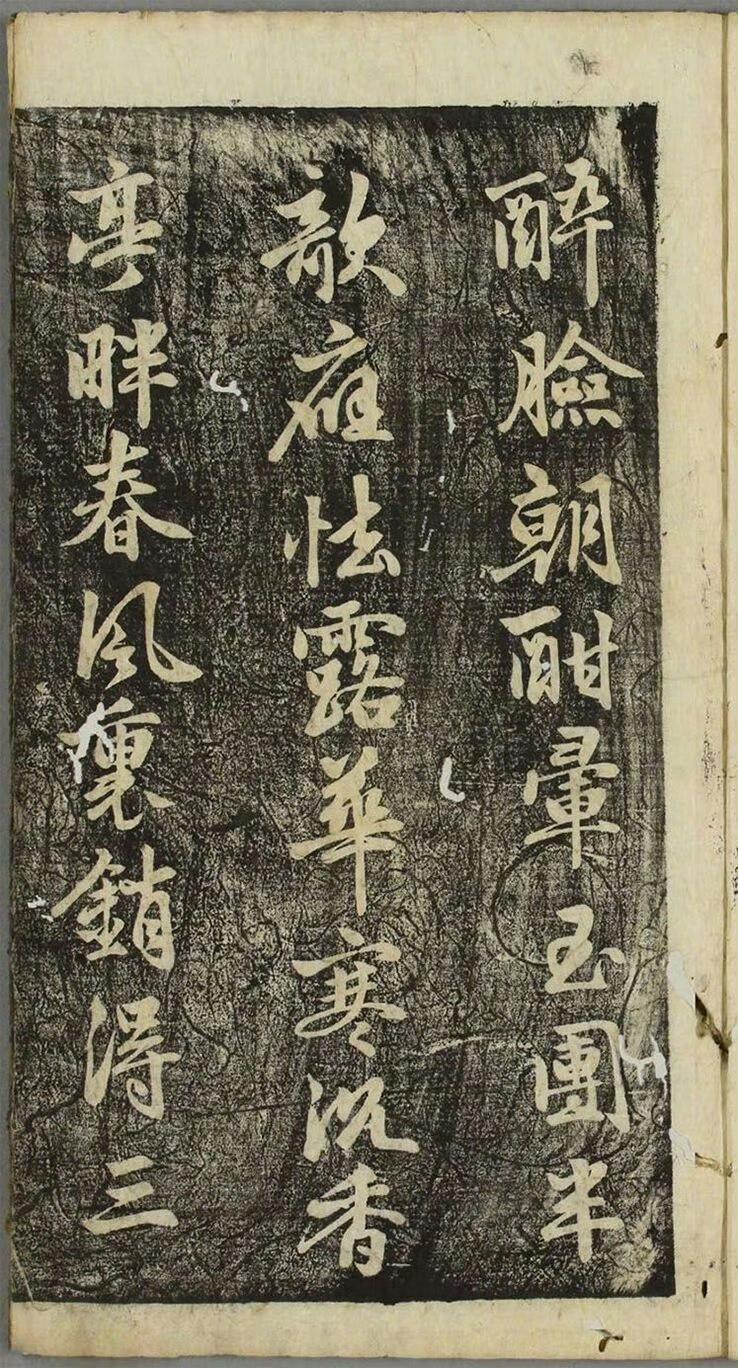 醉臉朝酣暈玉團半
欹應怯露華寒沉香
亭畔春風裏銷得三